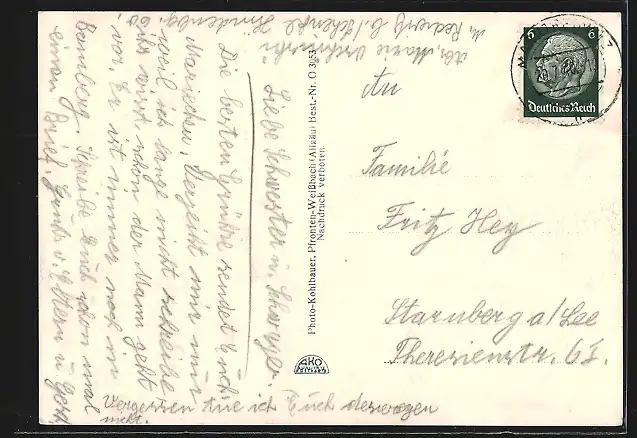 Liebe Schwester u. Schwager.
Die besten Grüße sendet Euch
Mariechen. Verzeiht mir nur
weil ich lange nicht schreibe
wißt schon der Mann geht
vor. Er ist immer noch in
Bamberg. Schreibe Euch schon mal
einen Brief. Gruß v. Eltern u.
Vergessen tue ich Euch deswegen
nicht.
Abs. Marie
Photo-Kohlbauer, Pfronten-Weißbach (Allgäu) Best.-Nr. O 3053
Nachdruck verboten.
AKO
An
Familie
Fritz Hey
Starnberg a/See
Theresienstr. 63.
6 6
Deutsches Reich